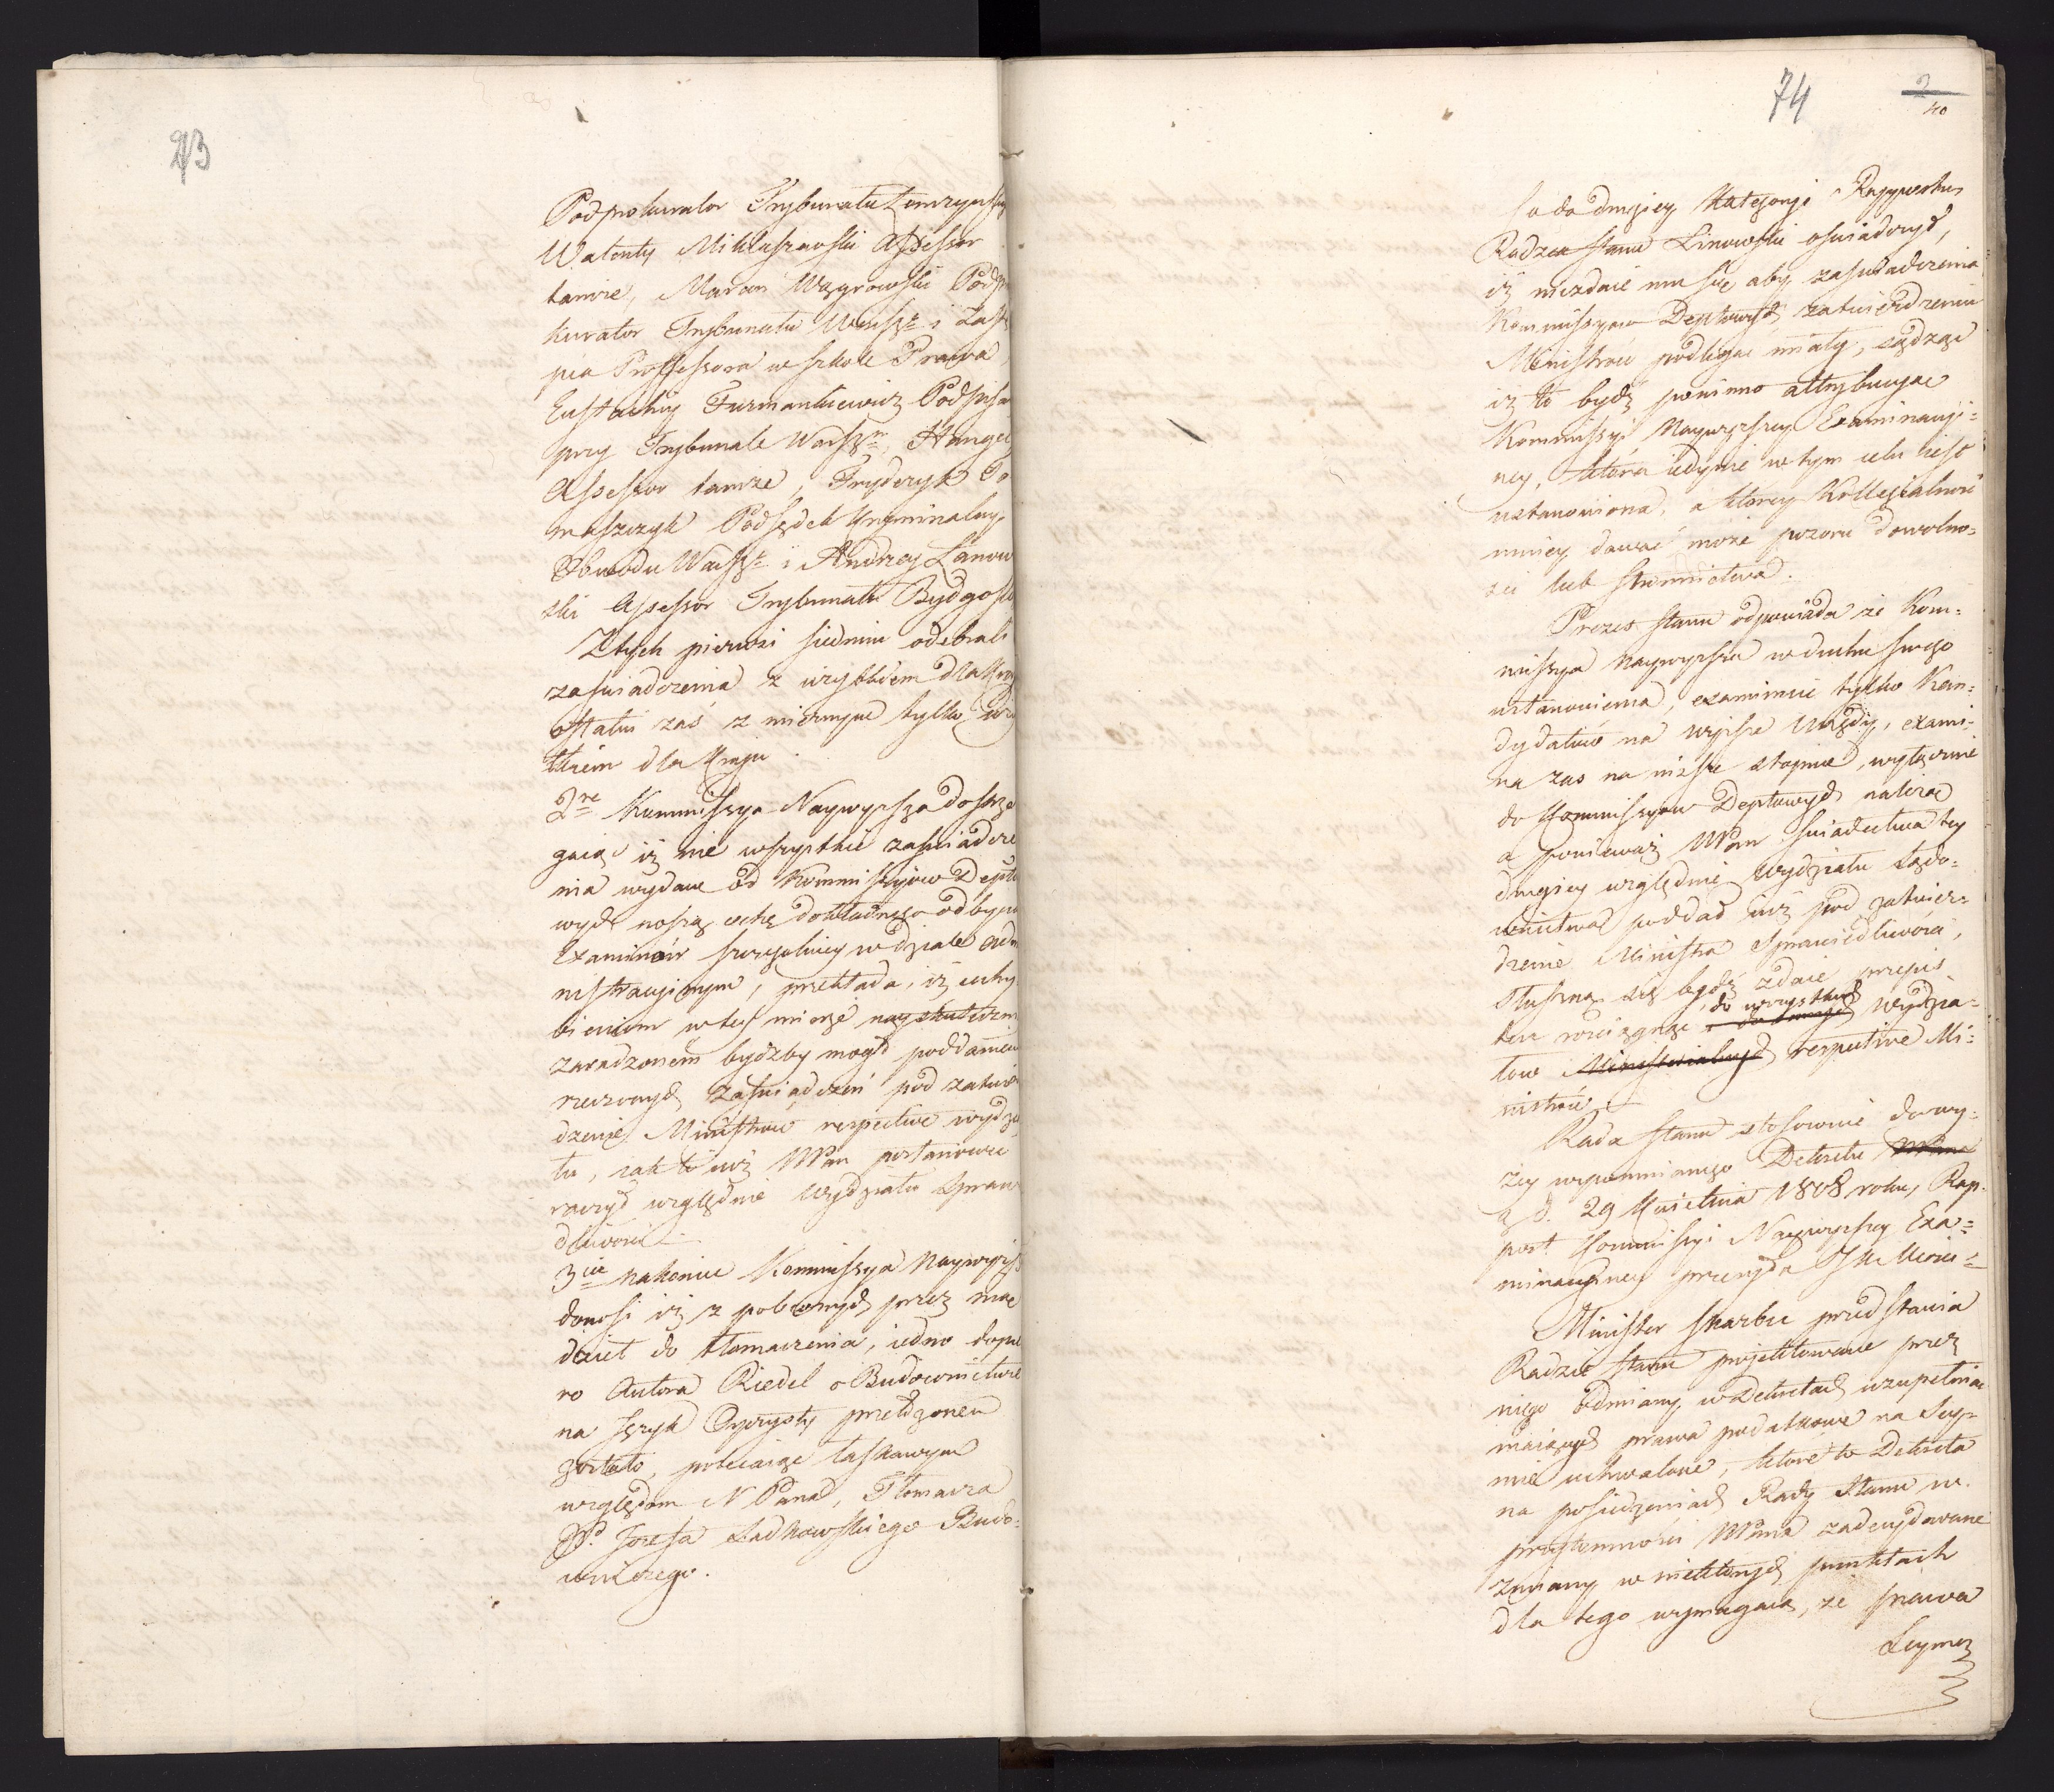 73
Podprokurator Trybunału Łomżyńskieg
Walenty Miklaszewski Assessor
tamże, Marcin Węgrowski Podpro
kurator Trybunału Warsz. i Zastę
pca Proffessora w szkole Prawa
Eustachy Furmankiewicz Podpisar
przy Trybunale Warszm,
Assessor tamże, Fryderyk To
maszczyk Podsędek Kryminalny
Obwodu Warszo i Andrzej Lanow
ski Assessor Trybunału Bydgosk
Z tych pierwsi siedmiu odebrali
zaświadczenia z użytkiem dla Kraj
ostatni zaś z miernym tylko uży
tkiem dla Kraju.
2re Kommissya Naywyższa dostrze
gaiąc iż nie wszystkie zaświadcze
nia wydane od Kommissyiów Depto
wych noszą cechę dokładnego odbycia
Examinów szczególniey w dziale adm
nistracyinym, przekłada, iż uchy
bieniom w tey mierze nayskuteczn
zaradzonem bydźby mogło poddaniem
rzeczonych zaświadczeń pod zatwier
dzenie Ministrów respective wydzia
łu, iak to iuż WPan postanowić
raczył względnie wydziału Spraw
dliwości.
3cie nakoniec Kommissya Naywyższ
donosi iż z poleconych przez nią
dzieł do tłomaczenia, iedno dopie
ro Autora Riedel o Budownictwie
na Język Oyczysty przełożonem
zostało, polecaiąc łaskawym
względom N Pana, Tłomacza
JP. Jozefa Sadkowskiego Budo=
wniczego.
74
2
40
so do drugiey Kategoryi Rapportu
Radzca stanu Linowski oświadczył,
iż niezdaie mu się aby zaświadczenia
Kommissyow Deptowych zatwierdzeniu
Ministrów podlegać miały, sądząc
iż to bydź powinno attrybucyą
Kommissyi Naywyższey Examinacyi=
ney, która iedynie w tym celu iest
ustanowiona, a ktorey Kollegialność
mniey dawać może pozoru dowolno=
ści lub stronnictwa.
Prezes stanu odpowiada że Kom=
missya Naywyższa w duchu swego
ustanowienia, examinuie tylko Kan=
dydatów na wyższe Urzędy, exami=
na zaś na niższe stopnie, wyłącznie
do Kommissyow Deptowych należą
a ponieważ WPan świadectwa tey
drugiey względnie wydziału Sądo=
wnictwa poddał iuż pod zatwier=
dzenie Ministra Sprawiedliwości,
słuszną się bydź zdaie przepis
do wszystkich
ten rościągnąć wydzia=
łow Ministerialnych respective Mi=
nistrów.
Rada stanu stosownie do wy=
żey wspomnianego Dekretu WPana
z d. 29 Kwietnia 1808 roku, Rap=
port Kommissyi Naywyższey Exa=
minacyiney przesyła JK Mości=
Minister skarbu przedstawia
Radzie stanu projektowane przez
niego odmiany w Dekretach uzupełnia
maiących prawa podatkowe na Sey=
mie uchwalone, które to Dekreta
na posiedzeniach Rady Stanu w
przytomności WPana zadecydowane
zmiany w niektorych punktach
dla tego wymagaią, że prawa
Seymu